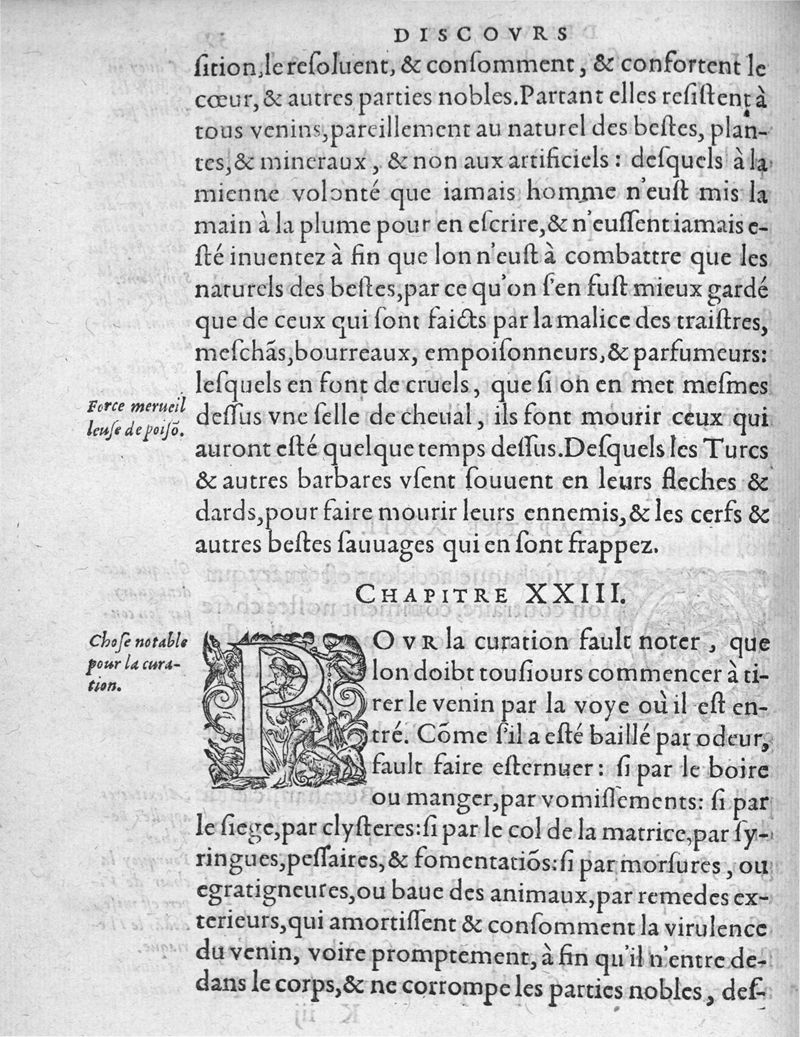 DISCOVRS
ſition,le reſoluent, & conſomment, & confortent le
cœur, & autres parties nobles.Partant elles reſiſtent à
tous venins,pareillement au naturel des beſtes, plan-
tes,& mineraux, & non aux artificiels : deſquels à la
mienne volonté que iamais homme n'euſt mis la
main à la plume pour en eſcrire,& n'euſſent iamais e-
ſté inuentez à fin que lon n'euſt à combattre que les
naturels des beſtes,par ce qu'on ſ'en fuſt mieux gardé
que de ceux qui ſont faicts par la malice des traiſtres,
meſchãs,bourreaux, empoiſonneurs,& parfumeurs:
leſquels en font de cruels, que ſi on en met meſmes
Force merueil
deſſus vne ſelle de cheual, ils font mourir ceux qui
leuſe de poiſõ.
auront eſté quelque temps deſſus.Deſquels les Turcs
& autres barbares vſent ſouuent en leurs fleches &
dards,pour faire mourir leurs ennemis,& les cerfs &
autres beſtes ſauuages qui en ſont frappez.
CHAPITRE XXIII.
Choſe notable
pour la cura-
tion.
POVR la curation fault noter, que
lon doibt touſiours commencer à ti-
rer le venin par la voye où il eſt en-
tré. Cõme ſ'il a eſté baillé par odeur,
fault faire eſternuer: ſi par le boire
ou manger,par vomiſſements: ſi par
le ſiege,par clyſteres:ſi par le col de la matrice,par ſy-
ringues,peſſaires,& fomentatiõs:ſi par morſures, ou
egratigneures,ou baue des animaux,par remedes ex-
terieurs,qui amortiſſent & conſomment la virulence
du venin, voire promptement, à fin qu'il n'entre de-
dans le corps,& ne corrompe les parties nobles, deſ-
K iij